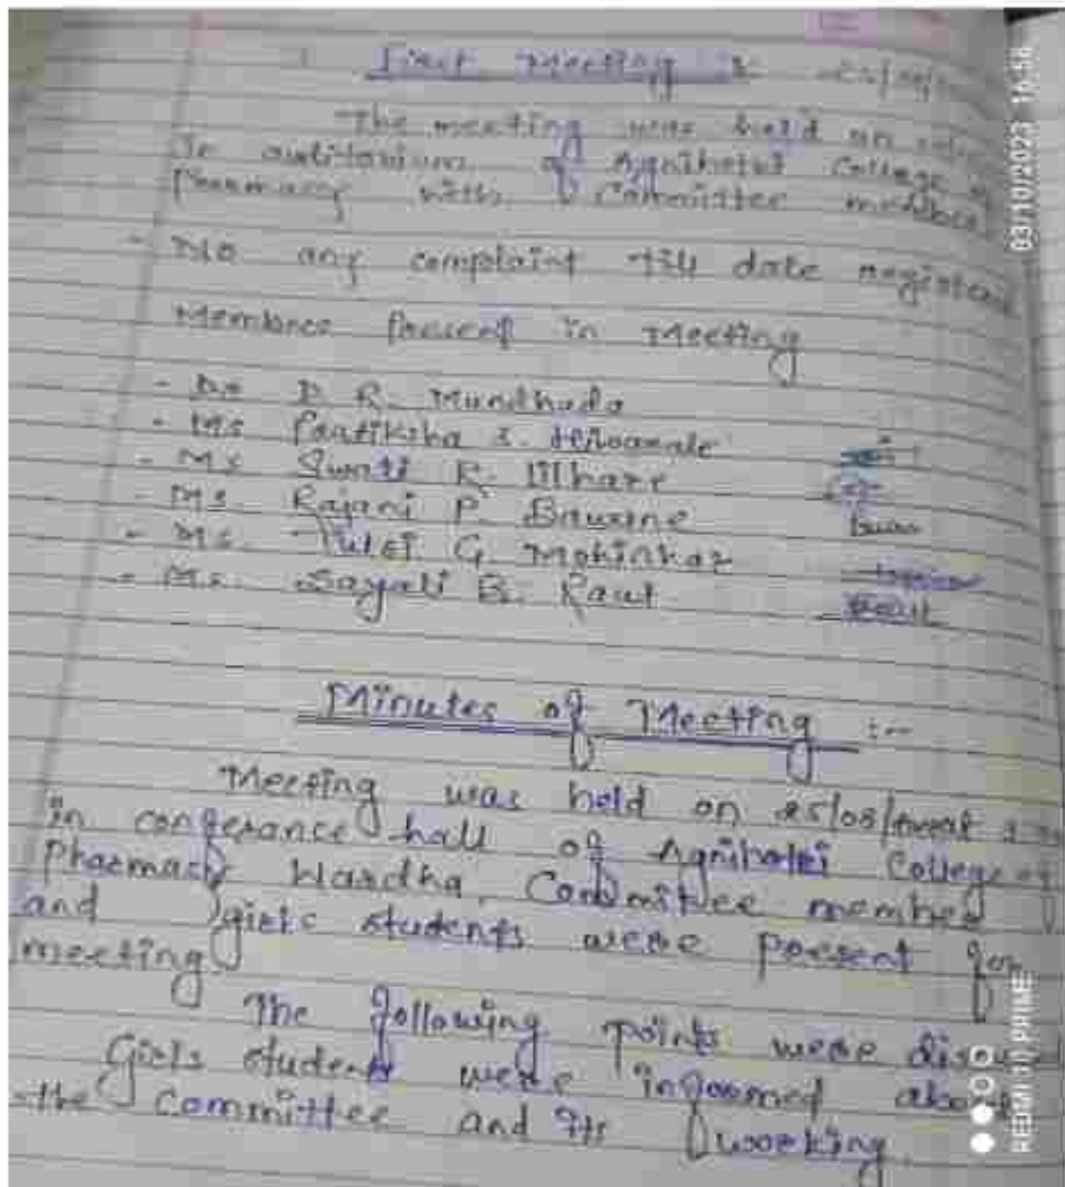 First Meeting :-
The meeting was held on
In auditorium of Agnihotri College of
Pharmacy with Committee member
- No any complaint till date register
Members Present in Meeting
- Dr D. R. Mundhada
- Ms Pratiksha S.
- Ms Swati R. Lilhare
- Ms. Rajani P. Bawane
- Ms. Tulsi G. Mohinkar
- Ms. Sayali B. Raut
Minutes of Meeting :-
Meeting was held on 25/08/
in conferance hall of Agnihotri College of
Pharmacy Wardha. Committee member
and girls students were present for
meeting.
The following points were
Girls student were informed about
the Committee and its working.
03/10/2023 16:56
REDMI 10 PRIME